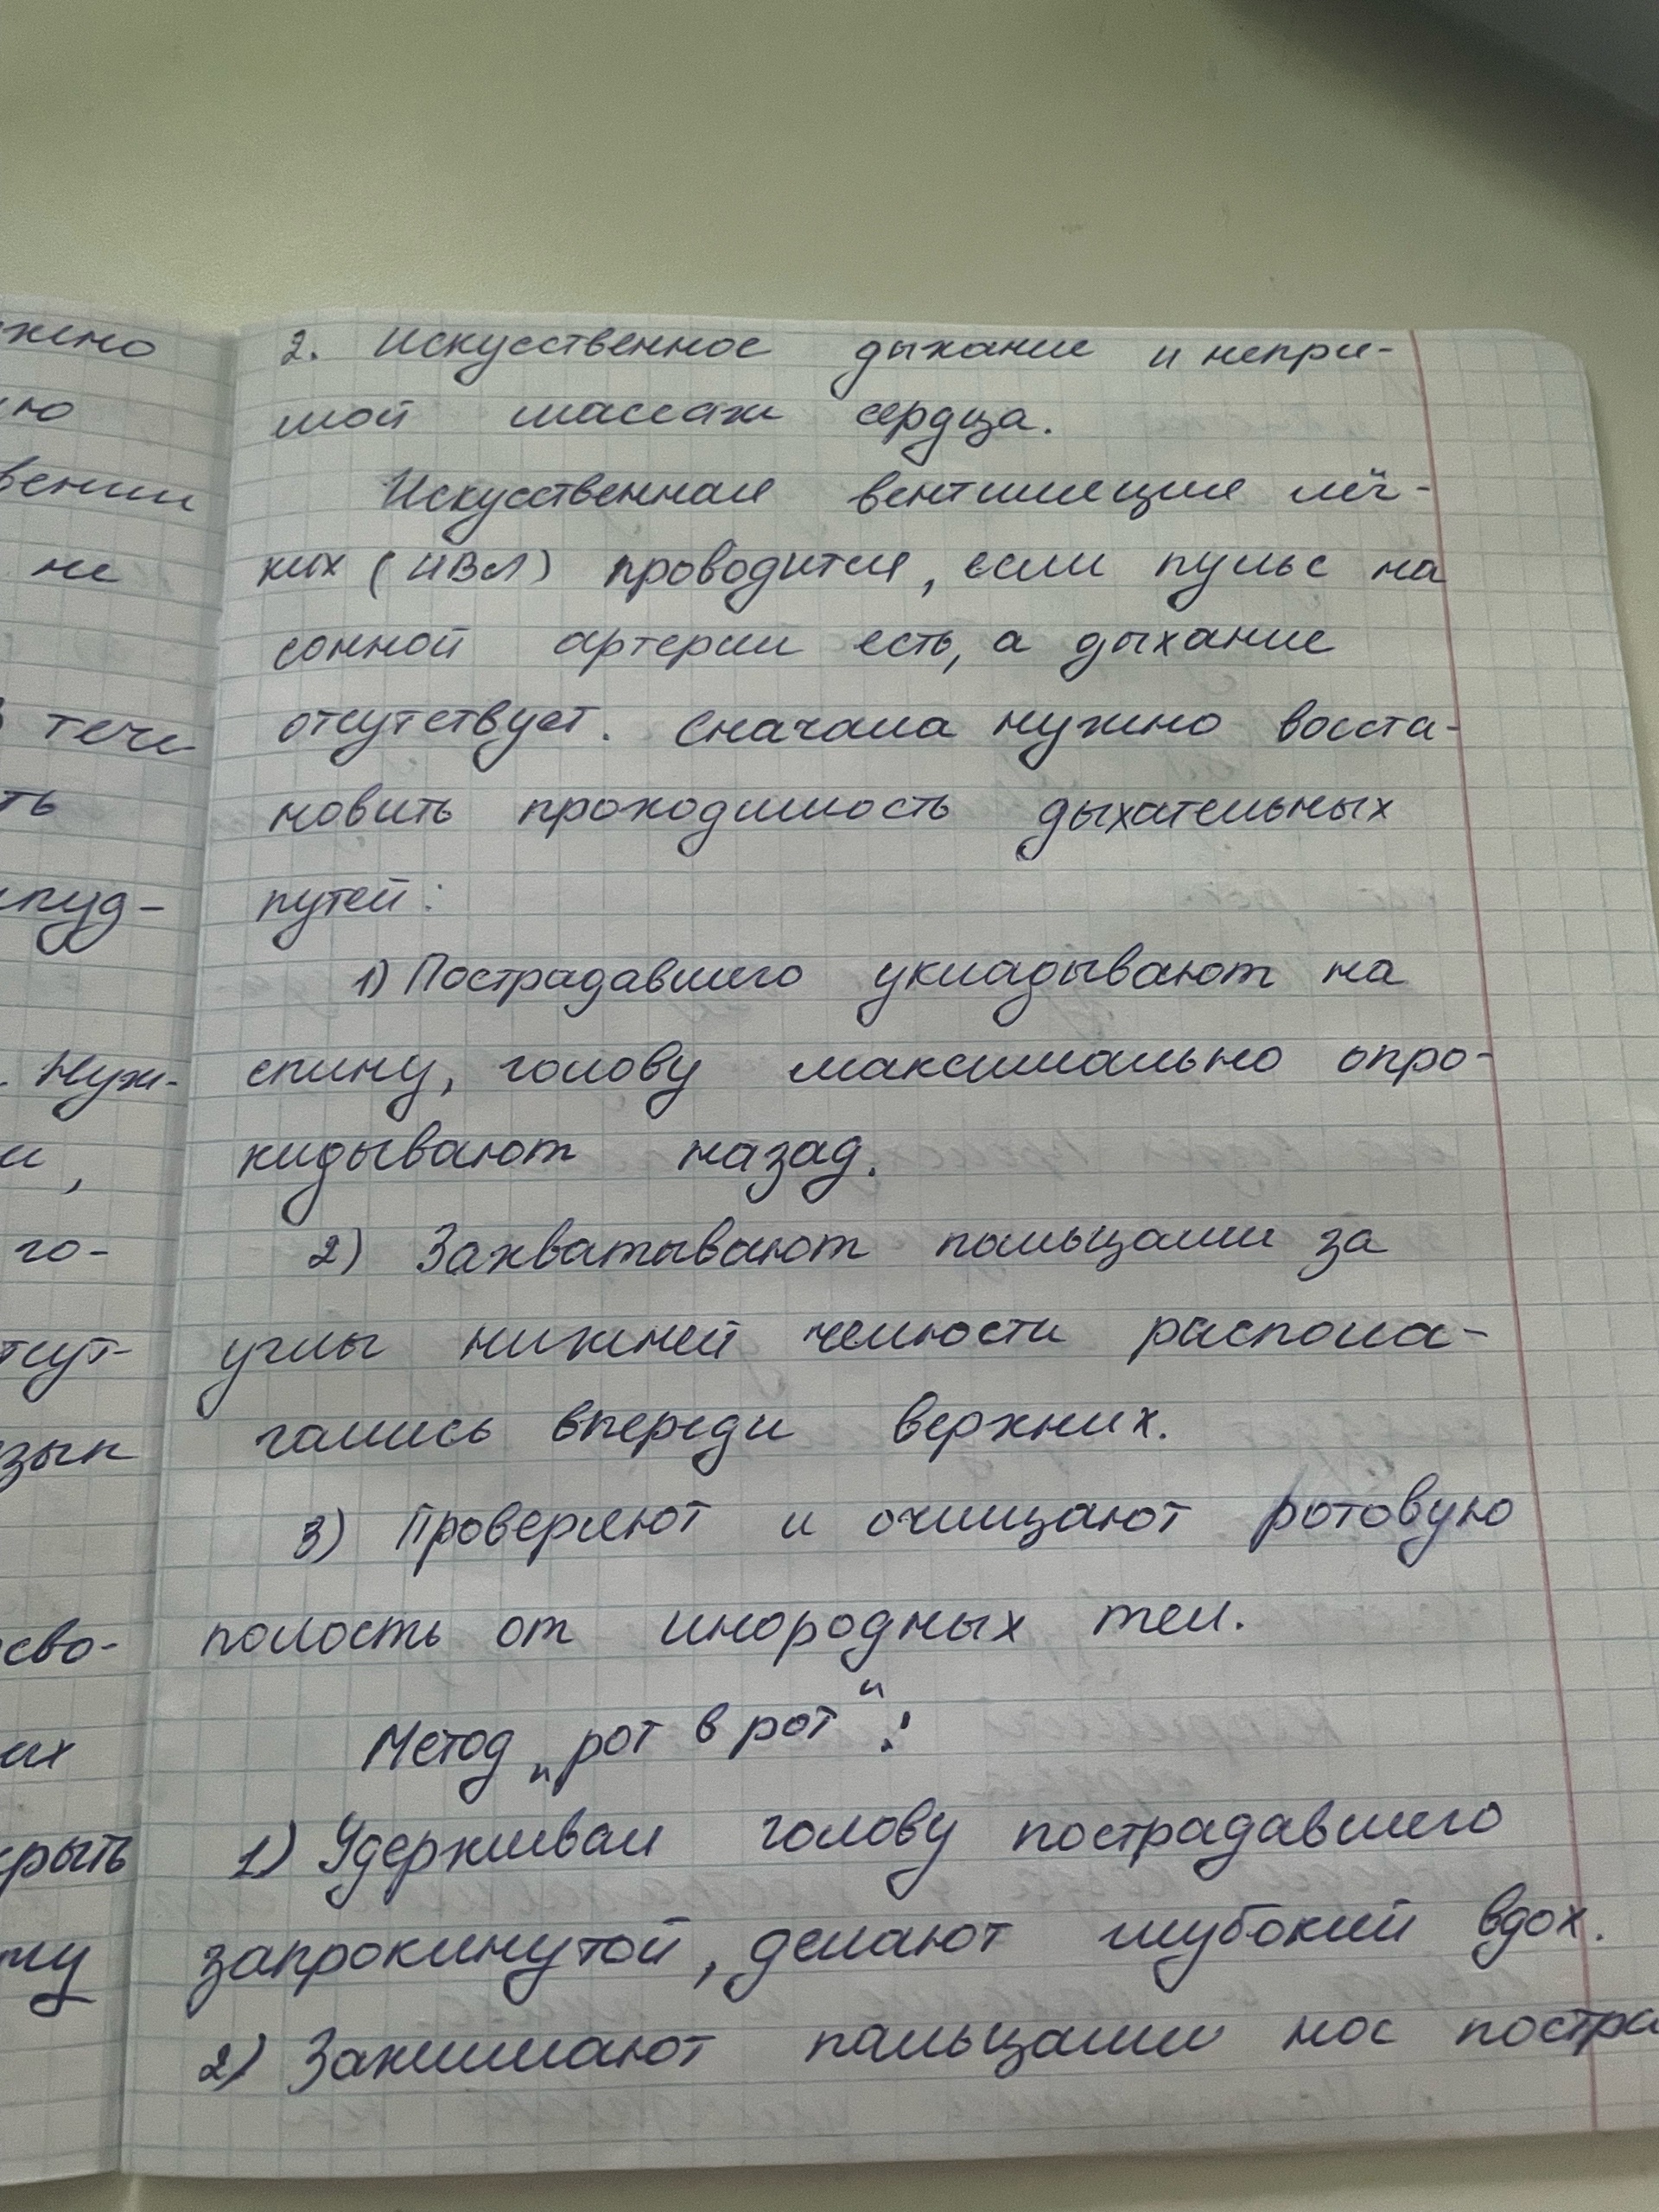 жно
ию
вении
не
тече
ть
пуд-
. Нуж-
и,
го-
тсут-
зык
сво-
их
крыть
му
2. Искусственное дыхание и непря-
мой массаж сердца.
Искусственная вентиляция лёг-
ких (ИВЛ) проводится, если пульс на
сонной артерии есть, а дыхание
отсутствует. Сначала нужно восста-
новить проходимость дыхательных
путей:
1) Пострадавшего укладывают на
спину, голову максимально опро-
кидывают назад.
2) Захватывают пальцами за
углы нижней челюсти распола-
гались впереди верхних.
3) Проверяют и очищают ротовую
полость от инородных тел.
Метод „рот в рот“:
1) Удерживая голову пострадавшего
запрокинутой, делают глубокий вдох.
2) Зажимают пальцами нос постра